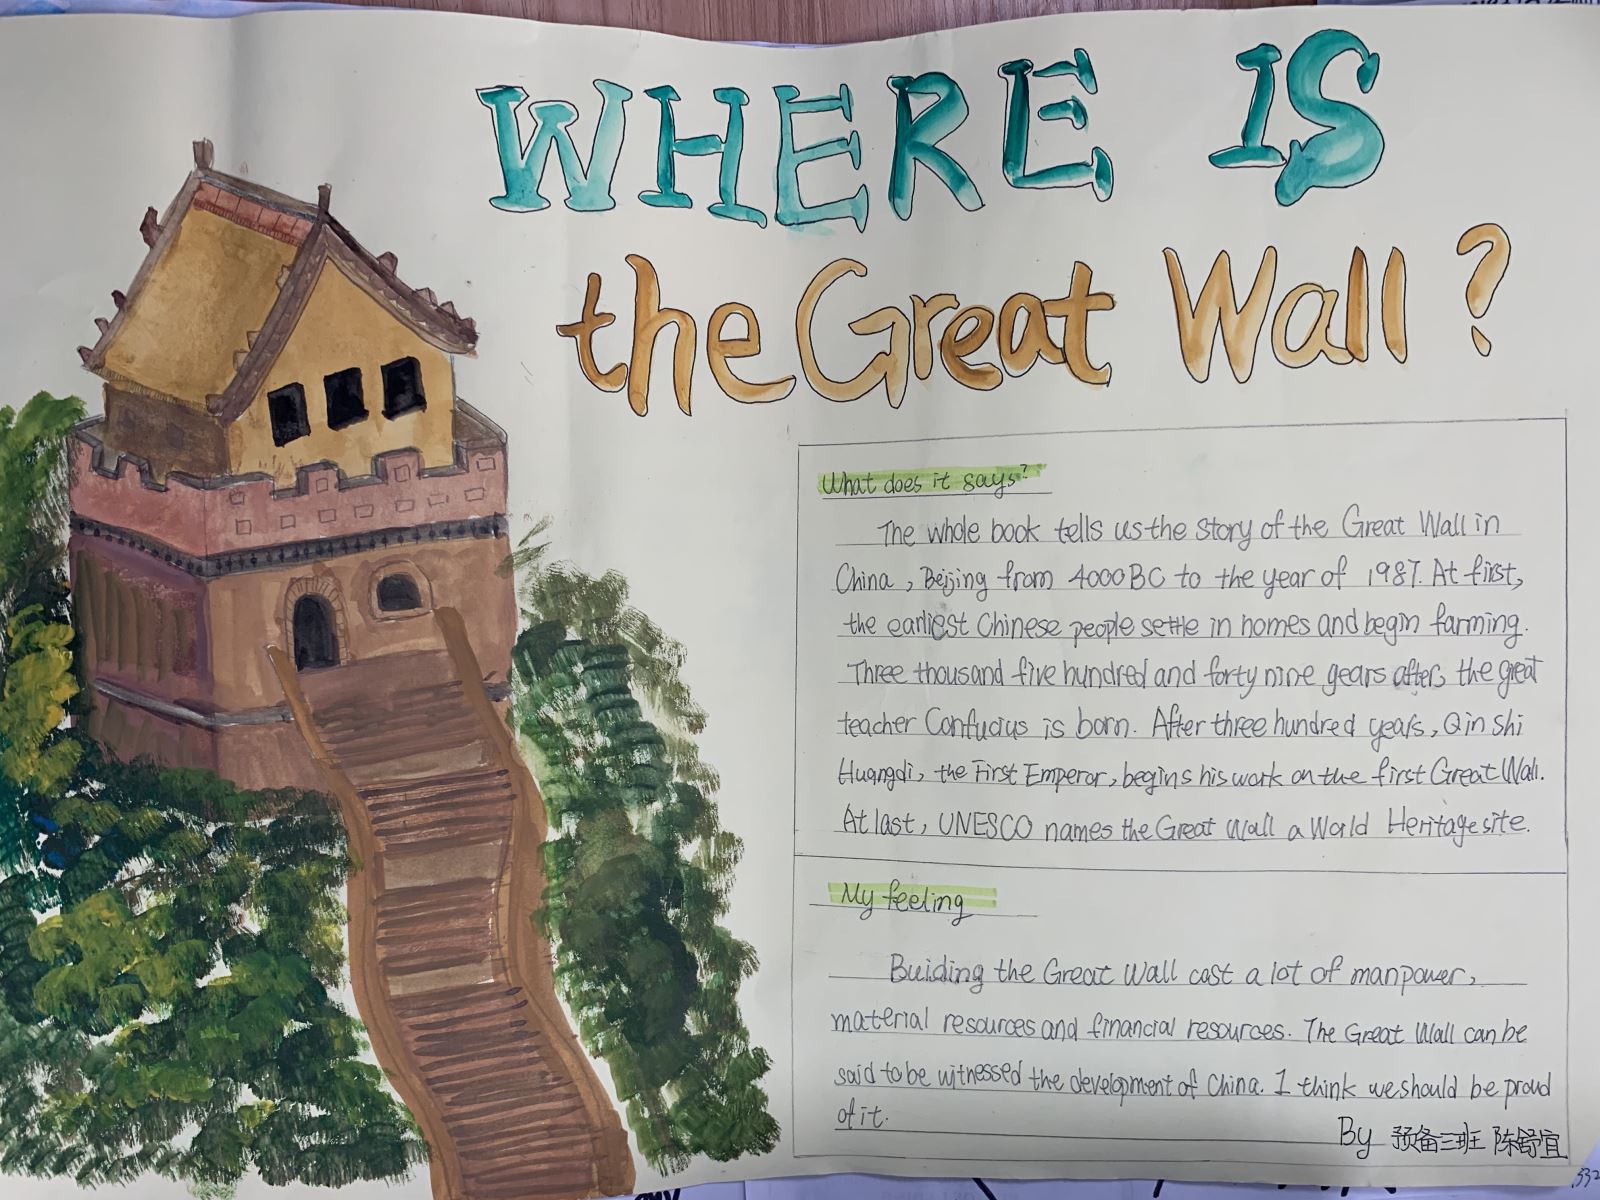 WHERE IS
the Great Wall?
What does it says?
The whole book tells us the story of the Great Wall in
China, Beijing from 4000BC to the year of 1987. At first,
the earliest Chinese people settle in homes and begin farming.
Three thousand five hundred and forty nine years after, the great
teacher Confucius is born. After three hundred years, Qin Shi
Huangdi, the First Emperor, begins his work on the first Great Wall.
At last, UNESCO names the Great Wall a World Heritage site.
My feeling
Buiding the Great Wall cast a lot of manpower,
material resources and financial resources. The Great Wall can be
said to be witnessed the development of China. I think we should be proud
of it.
By 预备三班 陈舒宜